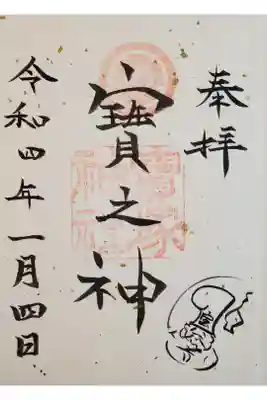 奉拝
寶之神
令和四年一月四日